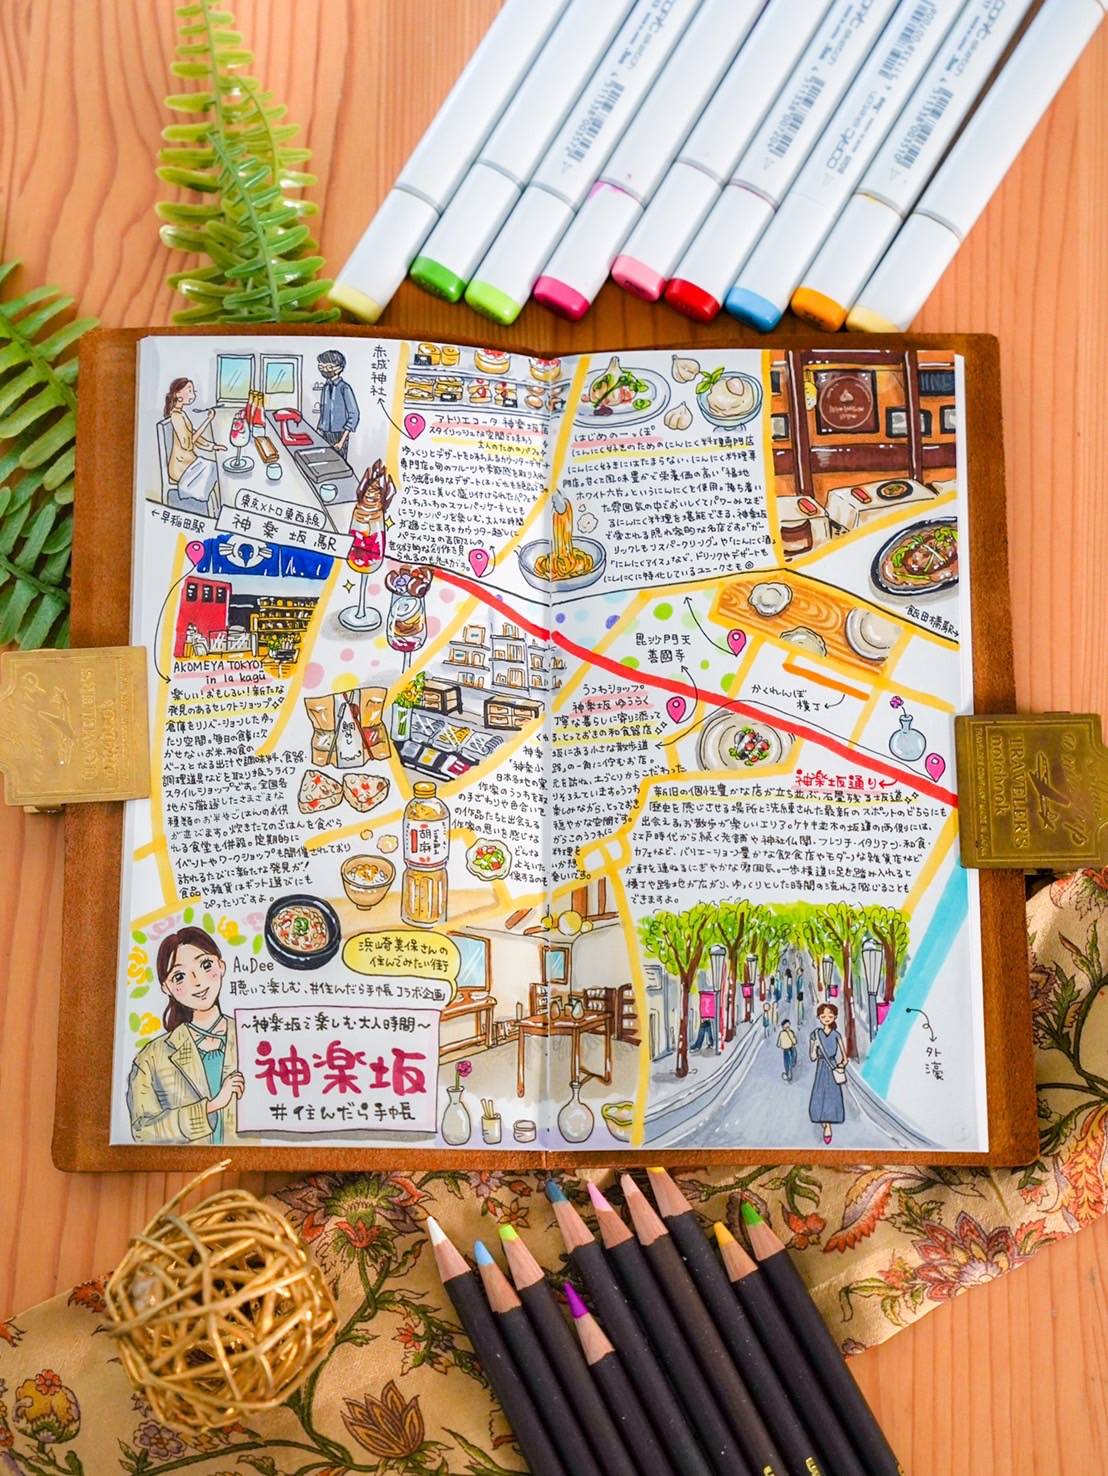 赤城神社
アトリエコータ 神楽坂店
スタイリッシュな空間で味わう
大人のためのパフェ
ゆっくりとデザートを味わえるカウンターデザート
専門店。旬のフルーツや季節感を取り入れ
た独創的なデザートはいずれも絶品です。
グラスに美しく盛り付けられたパフェや
ふわふわのスフレパンケーキとともに
シャンパンを楽しむ、大人な時間
が過ごせます。カウンター越しに
パティシエの吉岡さんの
られるのも魅力的。
はじめの一っぽ
にんにく好きのためのにんにく料理専門店
にんにく好きにはたまらない、にんにく料理専
門店。甘くて風味豊かで栄養価の高い「福地
ホワイト六片」というにんにくを使用。落ち着い
た雰囲気の中でおいしくてパワーみなぎ
るにんにく料理を堪能できる、神楽坂
で愛される隠れ家的な名店です。「ガー
リックレモンスパークリング」や「にんにく酒」
「にんにくアイス」など、ドリンクやデザートも
にんにくに特化しているユニークさも◎
←早稲田駅
東京メトロ東西線
神楽坂駅
飯田橋駅→
AKOMEYA TOKYO
in la kagū
楽しい！おもしろい！新たな
発見のあるセレクトショップ
倉庫をリノベーションしたゆっ
たり空間。毎日の食に欠
かせないお米、和食の
ベースとなる出汁や調味料、食器・
調理道具などを取り扱うライフ
スタイルショップです。全国各
地から厳選したさまざまな
種類のお米やごはんのお供
が並びます。炊きたてのごはんを食べら
れる食堂も併設。定期的に
イベントやワークショップも開催されており
訪れるたびに新たな発見が！
食品や雑貨はギフト選びにも
ぴったりですよ。
毘沙門天
善國寺
かくれんぼ
横丁
うつわショップ
神楽坂 ゆうらく
丁寧な暮らしに寄り添って
る、とっておきの和食器店
坂にある小さな散歩道
路」の一角に佇むお店。
作家のうつわを取
の手ざわりや色合いを
の作品たちと出会える
作家の思いを感じな
神楽坂通り
新旧の個性豊かなお店が立ち並ぶ、石畳残る坂道
歴史を感じさせる場所と洗練された最新のスポットのどちらにも
出会える、お散歩が楽しいエリア。ケヤキ並木の坂道の両側には、
江戸時代から続く老舗や神社仏閣、フレンチ・イタリアン・和食・
カフェなど、バリエーション豊かな飲食店やモダンな雑貨店など
が軒を連ねるにぎやかな雰囲気。一歩横道に足を踏み入れると
横丁や路地が広がり、ゆっくりとした時間の流れを感じることも
できますよ。
胡麻
浜崎美保さんの
住んでみたい街
AuDee
聴いて楽しむ、#住んだら手帳コラボ企画
〜神楽坂で楽しむ大人時間〜
神楽坂
#住んだら手帳
外濠
TRAVELER'S
notebook
COPIC sketch